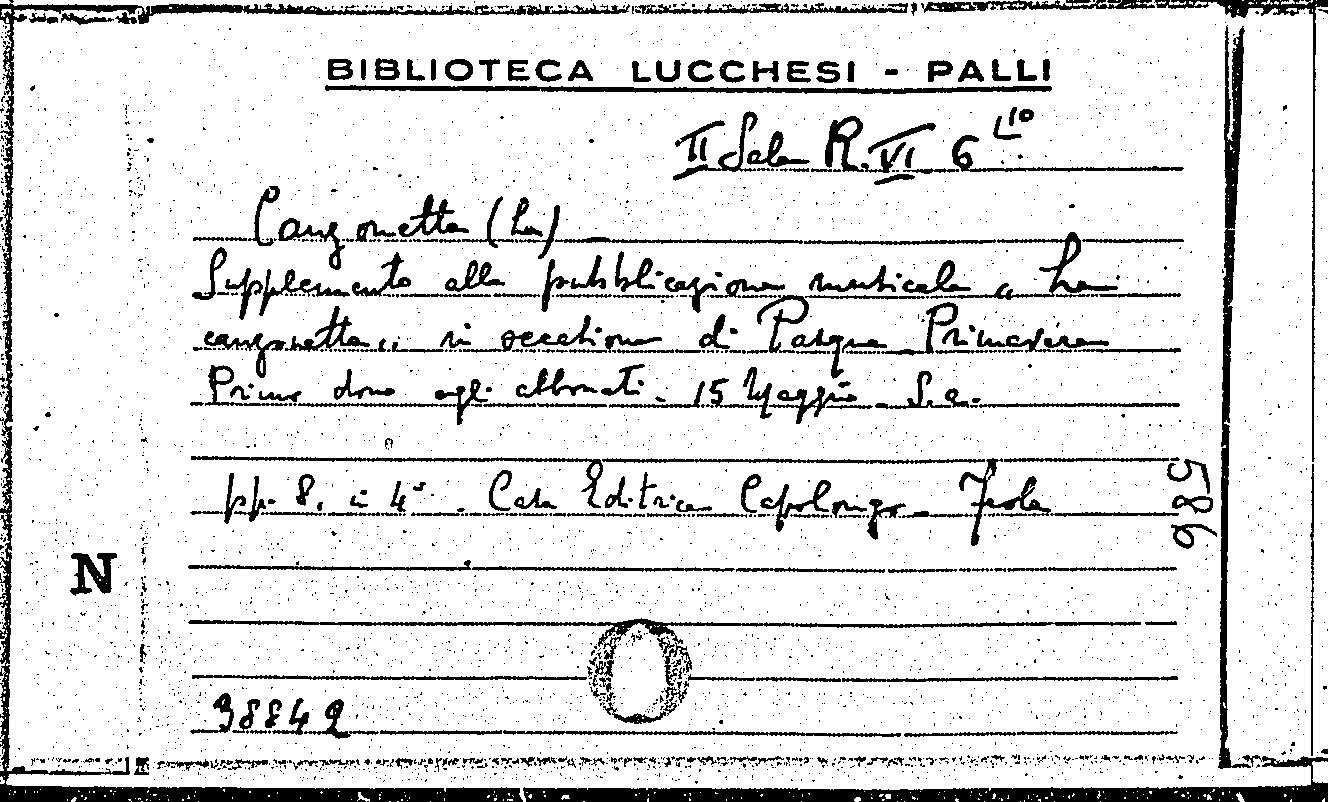 BIBLIOTECA LUCCHESI - PALLI
II Sala R. VI 6 L10
Canzonetta (La)
Supplemento alla pubblicazione musicale „ La
canzonetta „ in occasione di Pasqua Primavera
Primo dono agli abbonati. 15 Maggio. S.a.
pp. 8. in 4°. Casa Editrice Capolongo -
985
N
38842